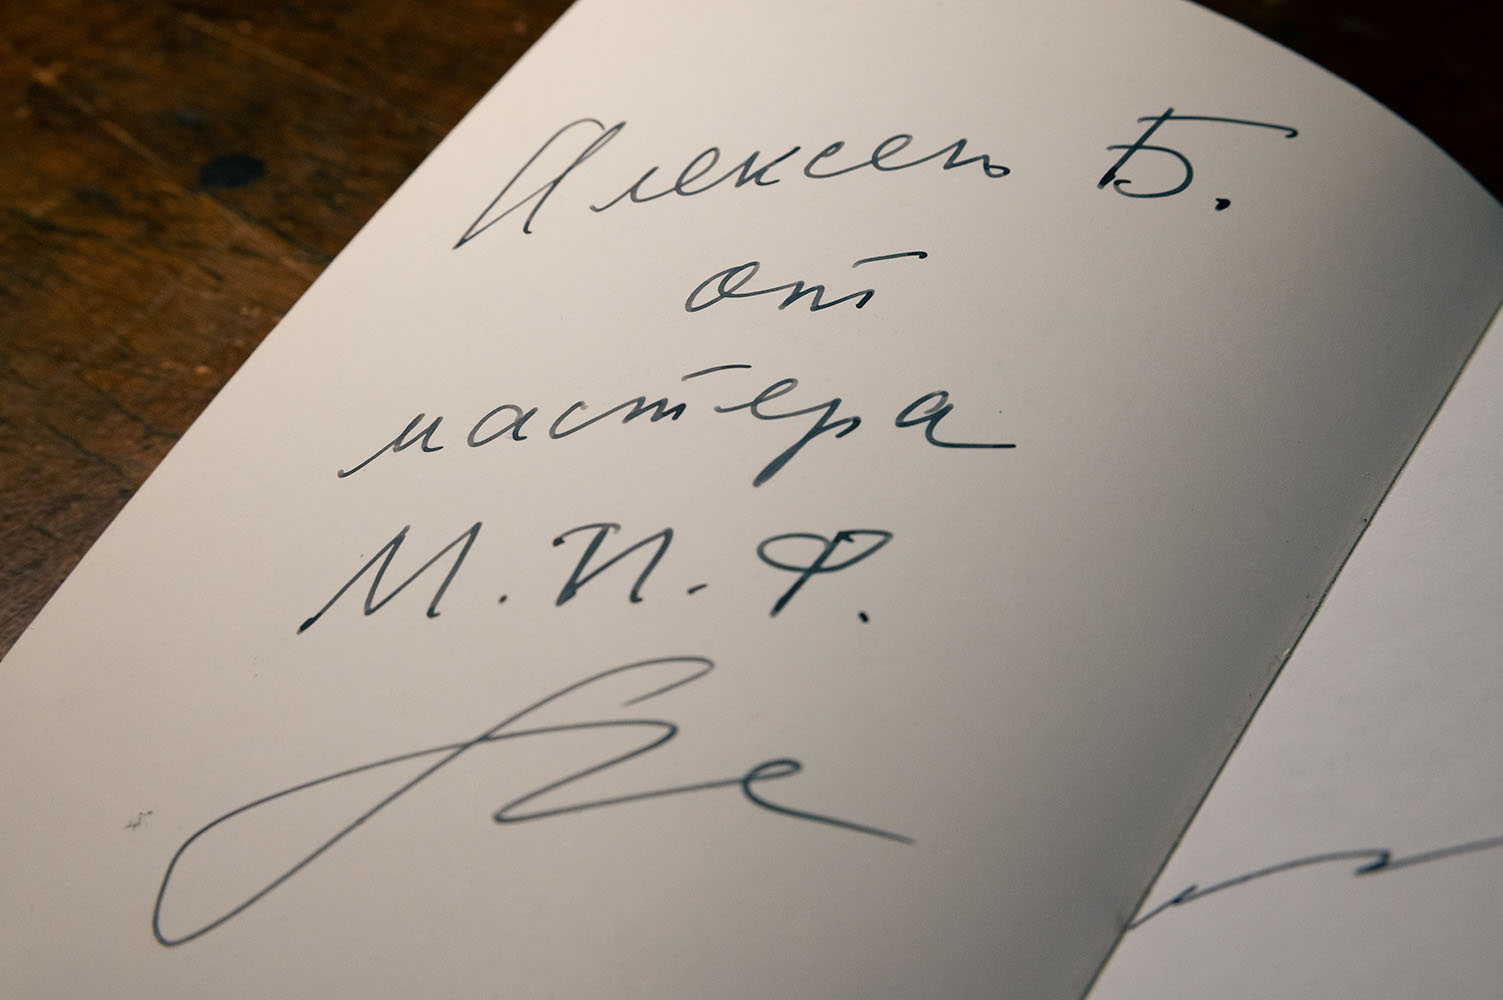 Алексею Б.
от
мастера
М. П. Ф.